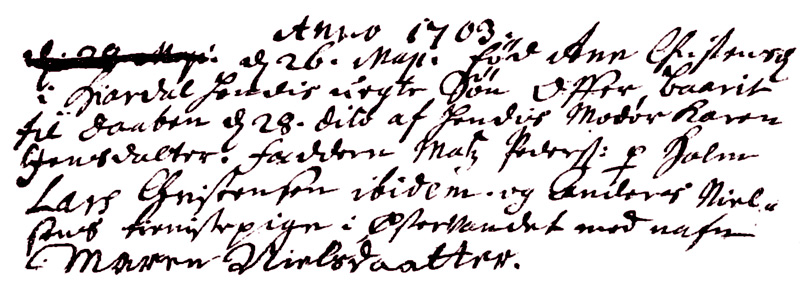 Anno 1703.
d. 28 Maji. d 26. Maji. fød Ane Christensd
i Hiardal hendis uegte Søn Offer, baarit
til daaben d 28. dito af hendis Moder Karen
Jensdatter. faddern Matz Peders: p Holm
Lars Christensen ibidem. og Anders Niel-
sens tienistepige i Østervandet med nafn
Maren Nielsdaatter.